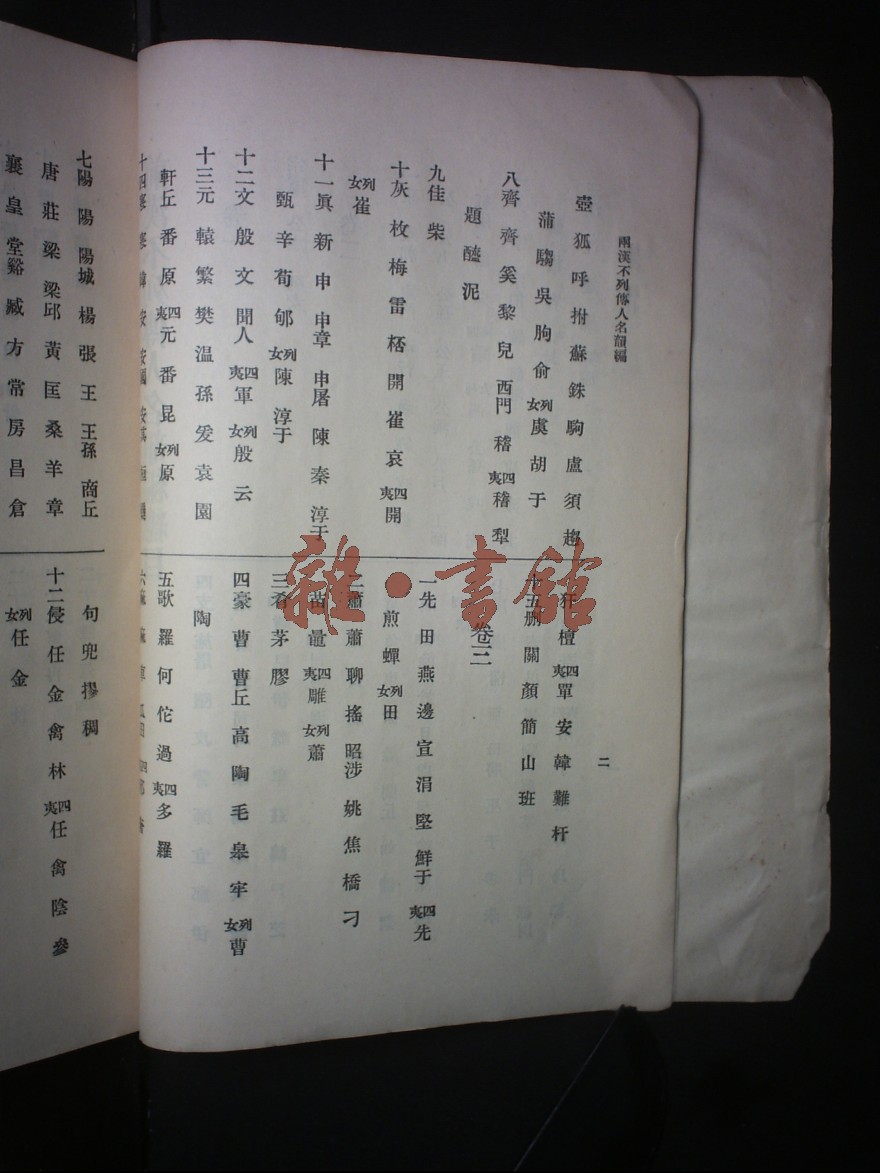 兩漢不列傳人名韻編
壺 狐 呼 拊 蘇 銖 駒 盧 須 趨
蒲 騶 吳 朐 俞 列女 虞 胡 于
八齊 齊 奚 黎 兒 西門 稽 四夷 稽 犁
題 醯 泥
九佳 柴
十灰 枚 梅 雷 桮 開 崔 哀 四夷 開
列女 崔
十一眞 新 申 申章 申屠 陳 秦 淳于
甄 辛 荀 郇 列女 陳 淳于
十二文 殷 文 聞人 四夷 軍 列女 殷 云
十三元 轅 繁 樊 溫 孫 爰 袁 園
軒丘 番 原 四夷 元 番 昆 列女 原
檀 四夷 單 安 韓 難 杅
十五刪 關 顏 簡 山 班
卷三
一先 田 燕 邊 宣 涓 堅 鮮于 四夷 先
煎 蟬 列女 田
二蕭 蕭 聊 搖 昭涉 姚 焦 橋 刁
苗 鼂 四夷 雕 列女 蕭
三肴 茅 膠
四豪 曹 曹丘 高 陶 毛 皋 牢 列女 曹
陶
五歌 羅 何 佗 過 四夷 多 羅
二
七陽 陽 陽城 楊 張 王 王孫 商丘
唐 莊 梁 梁邱 黃 匡 桑 羊 章
襄 皇 堂谿 臧 方 常 房 昌 倉
句 兜 㨨 稠
十二侵 任 金 禽 林 四夷 任 禽 陰 參
列女 任 金
雜·書館